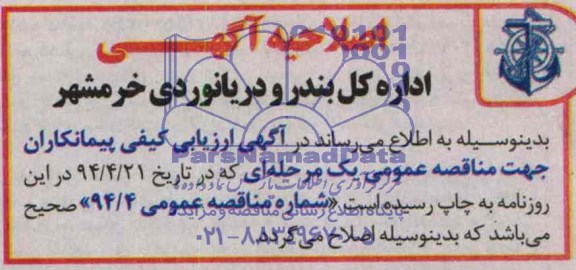 اصلاحیه آگهی
اداره کل بندر و دریانوردی خرمشهر
بدینوسیله به اطلاع می‌رساند در آگهی ارزیابی کیفی پیمانکاران
جهت مناقصه عمومی یک مرحله‌ای که در تاریخ ۹۴/۴/۲۱ در این
روزنامه به چاپ رسیده است «شماره مناقصه عمومی ۹۴/۴» صحیح
می‌باشد که بدینوسیله اصلاح می‌گردد.
ParsNamadData
پایگاه اطلاع رسانی مناقصه و مزایده